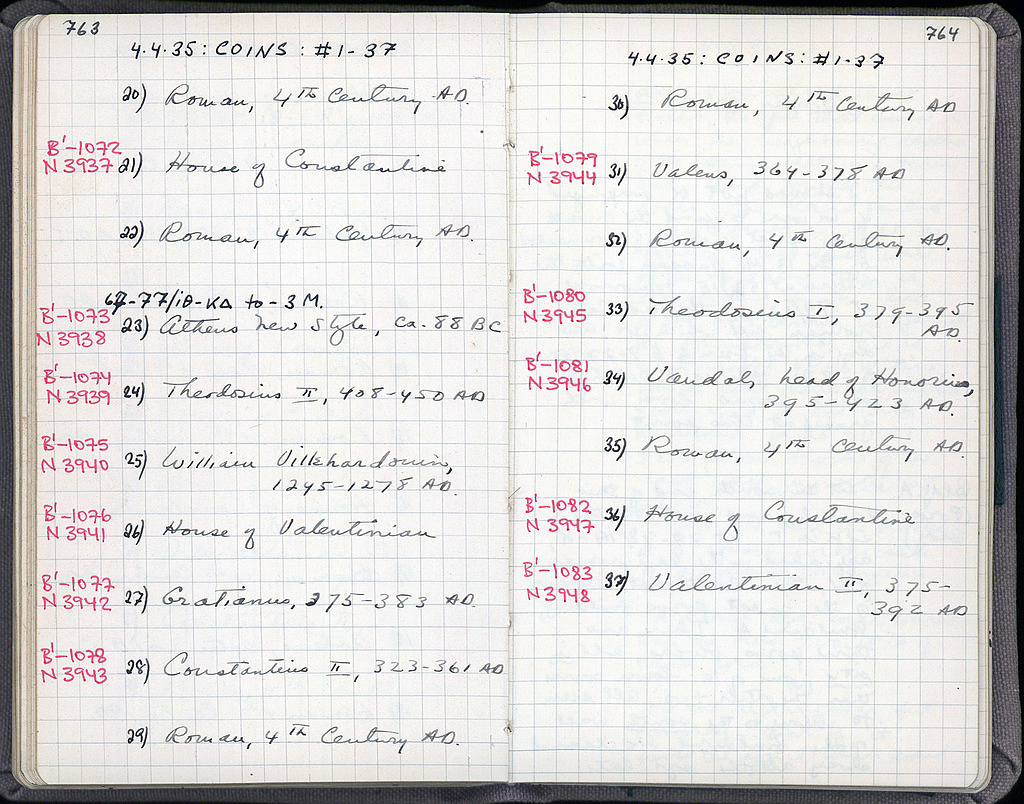 763
4.4.35: COINS: #1-37
20) Roman, 4TH Century AD.
B'-1072
N 3937 21) House of Constantine
22) Roman, 4TH Century AD.
67-77/ΙΘ-ΚΔ to -3M.
B'-1073
N 3938 23) Athens New Style, ca. 88 BC
B'-1074
N 3939 24) Theodosius II, 408-450 AD
B'-1075
N 3940 25) William Villehardouin,
1245-1278 AD.
B'-1076
N 3941 26) House of Valentinian
B'-1077
N 3942 27) Gratianus, 375-383 AD.
B'-1078
N 3943 28) Constantius II, 323-361 AD
29) Roman, 4TH Century AD.
764
4.4.35: COINS: #1-37
30) Roman, 4TH Century AD
B'-1079
N 3944 31) Valens, 364-378 AD
32) Roman, 4TH Century AD.
B'-1080
N 3945 33) Theodosius I, 379-395
AD.
B'-1081
N 3946 34) Vandal, head of Honorius,
395-423 AD.
35) Roman, 4TH Century AD.
B'-1082
N 3947 36) House of Constantine
B'-1083
N 3948 37) Valentinian II, 375-
392 AD